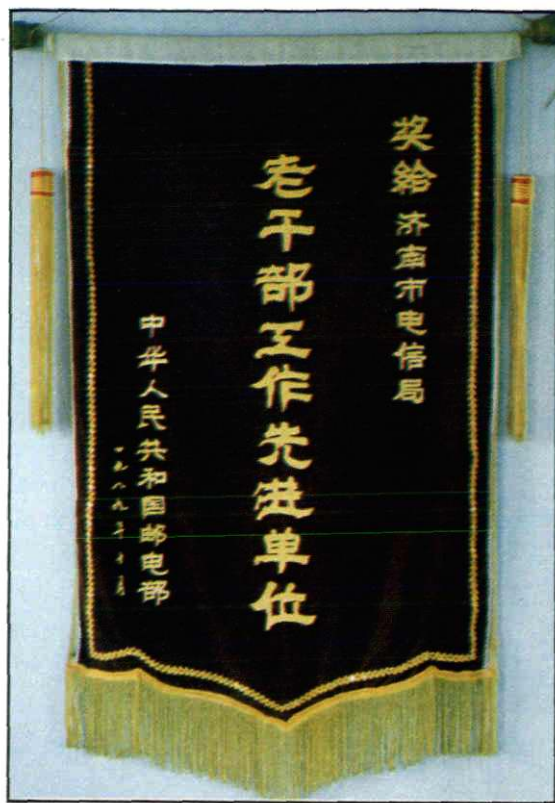 奖给济南市电信局
老干部工作先进单位
中华人民共和国邮电部
一九八九年十月